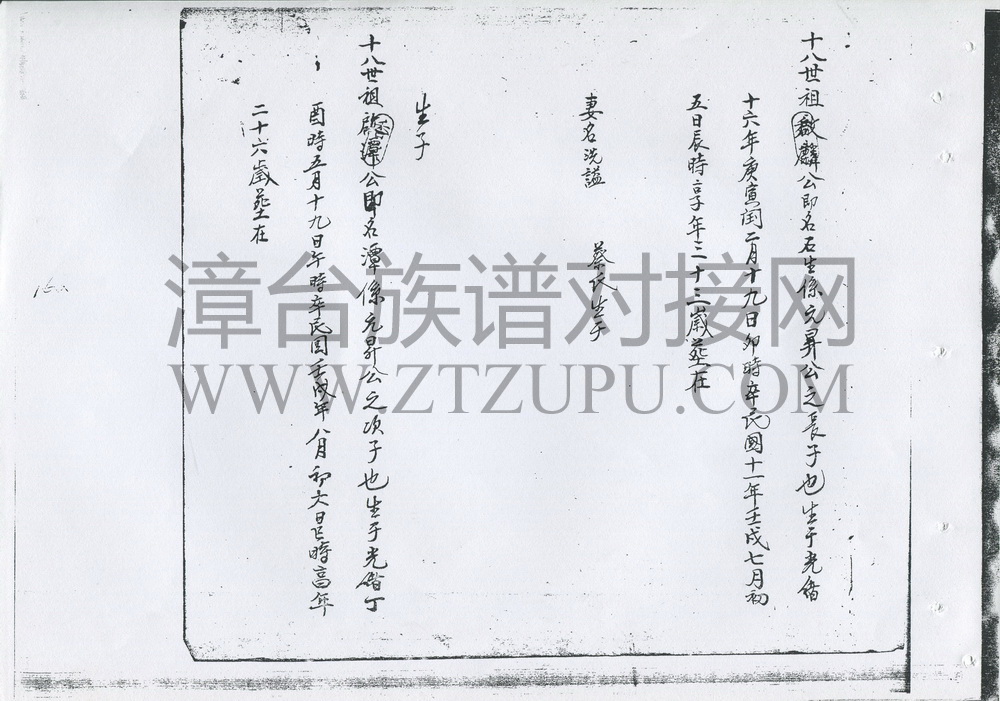 十八世祖啟麟公即名石生係元昇公之長子也生于光緒
十六年庚寅閏二月十九日卯時卒民國十一年壬戌七月初
五日辰時享年三十三歲葬在
妻名洗謚 蔡氏生子
生子
十八世祖啟潭公即名潭係元昇公之次子也生于光緒丁
酉時五月十九日午時卒民囯壬戌年八月初六日辰時高年
二十六歲葬在
漳台族谱对接网
WWW.ZTZUPU.COM